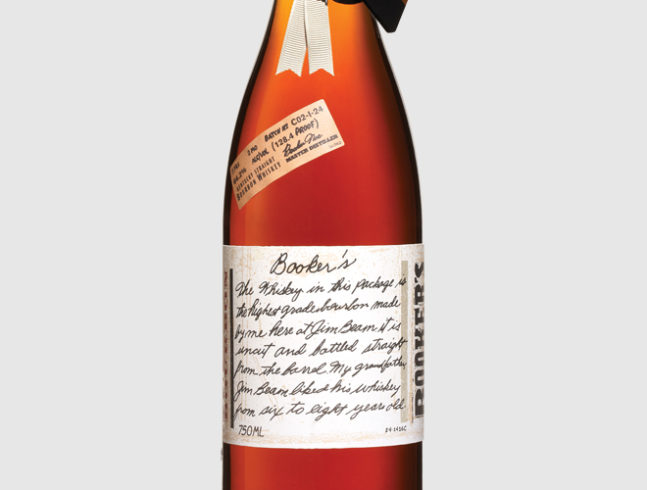 2 MO BATCH № C02-1-24
ALC/VOL (128.4 PROOF)
KENTUCKY STRAIGHT Booker Noe
BOURBON WHISKEY MASTER DISTILLER
Booker's
The Whiskey in this package is
the highest grade bourbon made
by me here at Jim Beam it is
uncut and bottled straight
from the barrel. My grandfather,
Jim Beam liked his whiskey
from six to eight years old
750ML
BOOKER'S